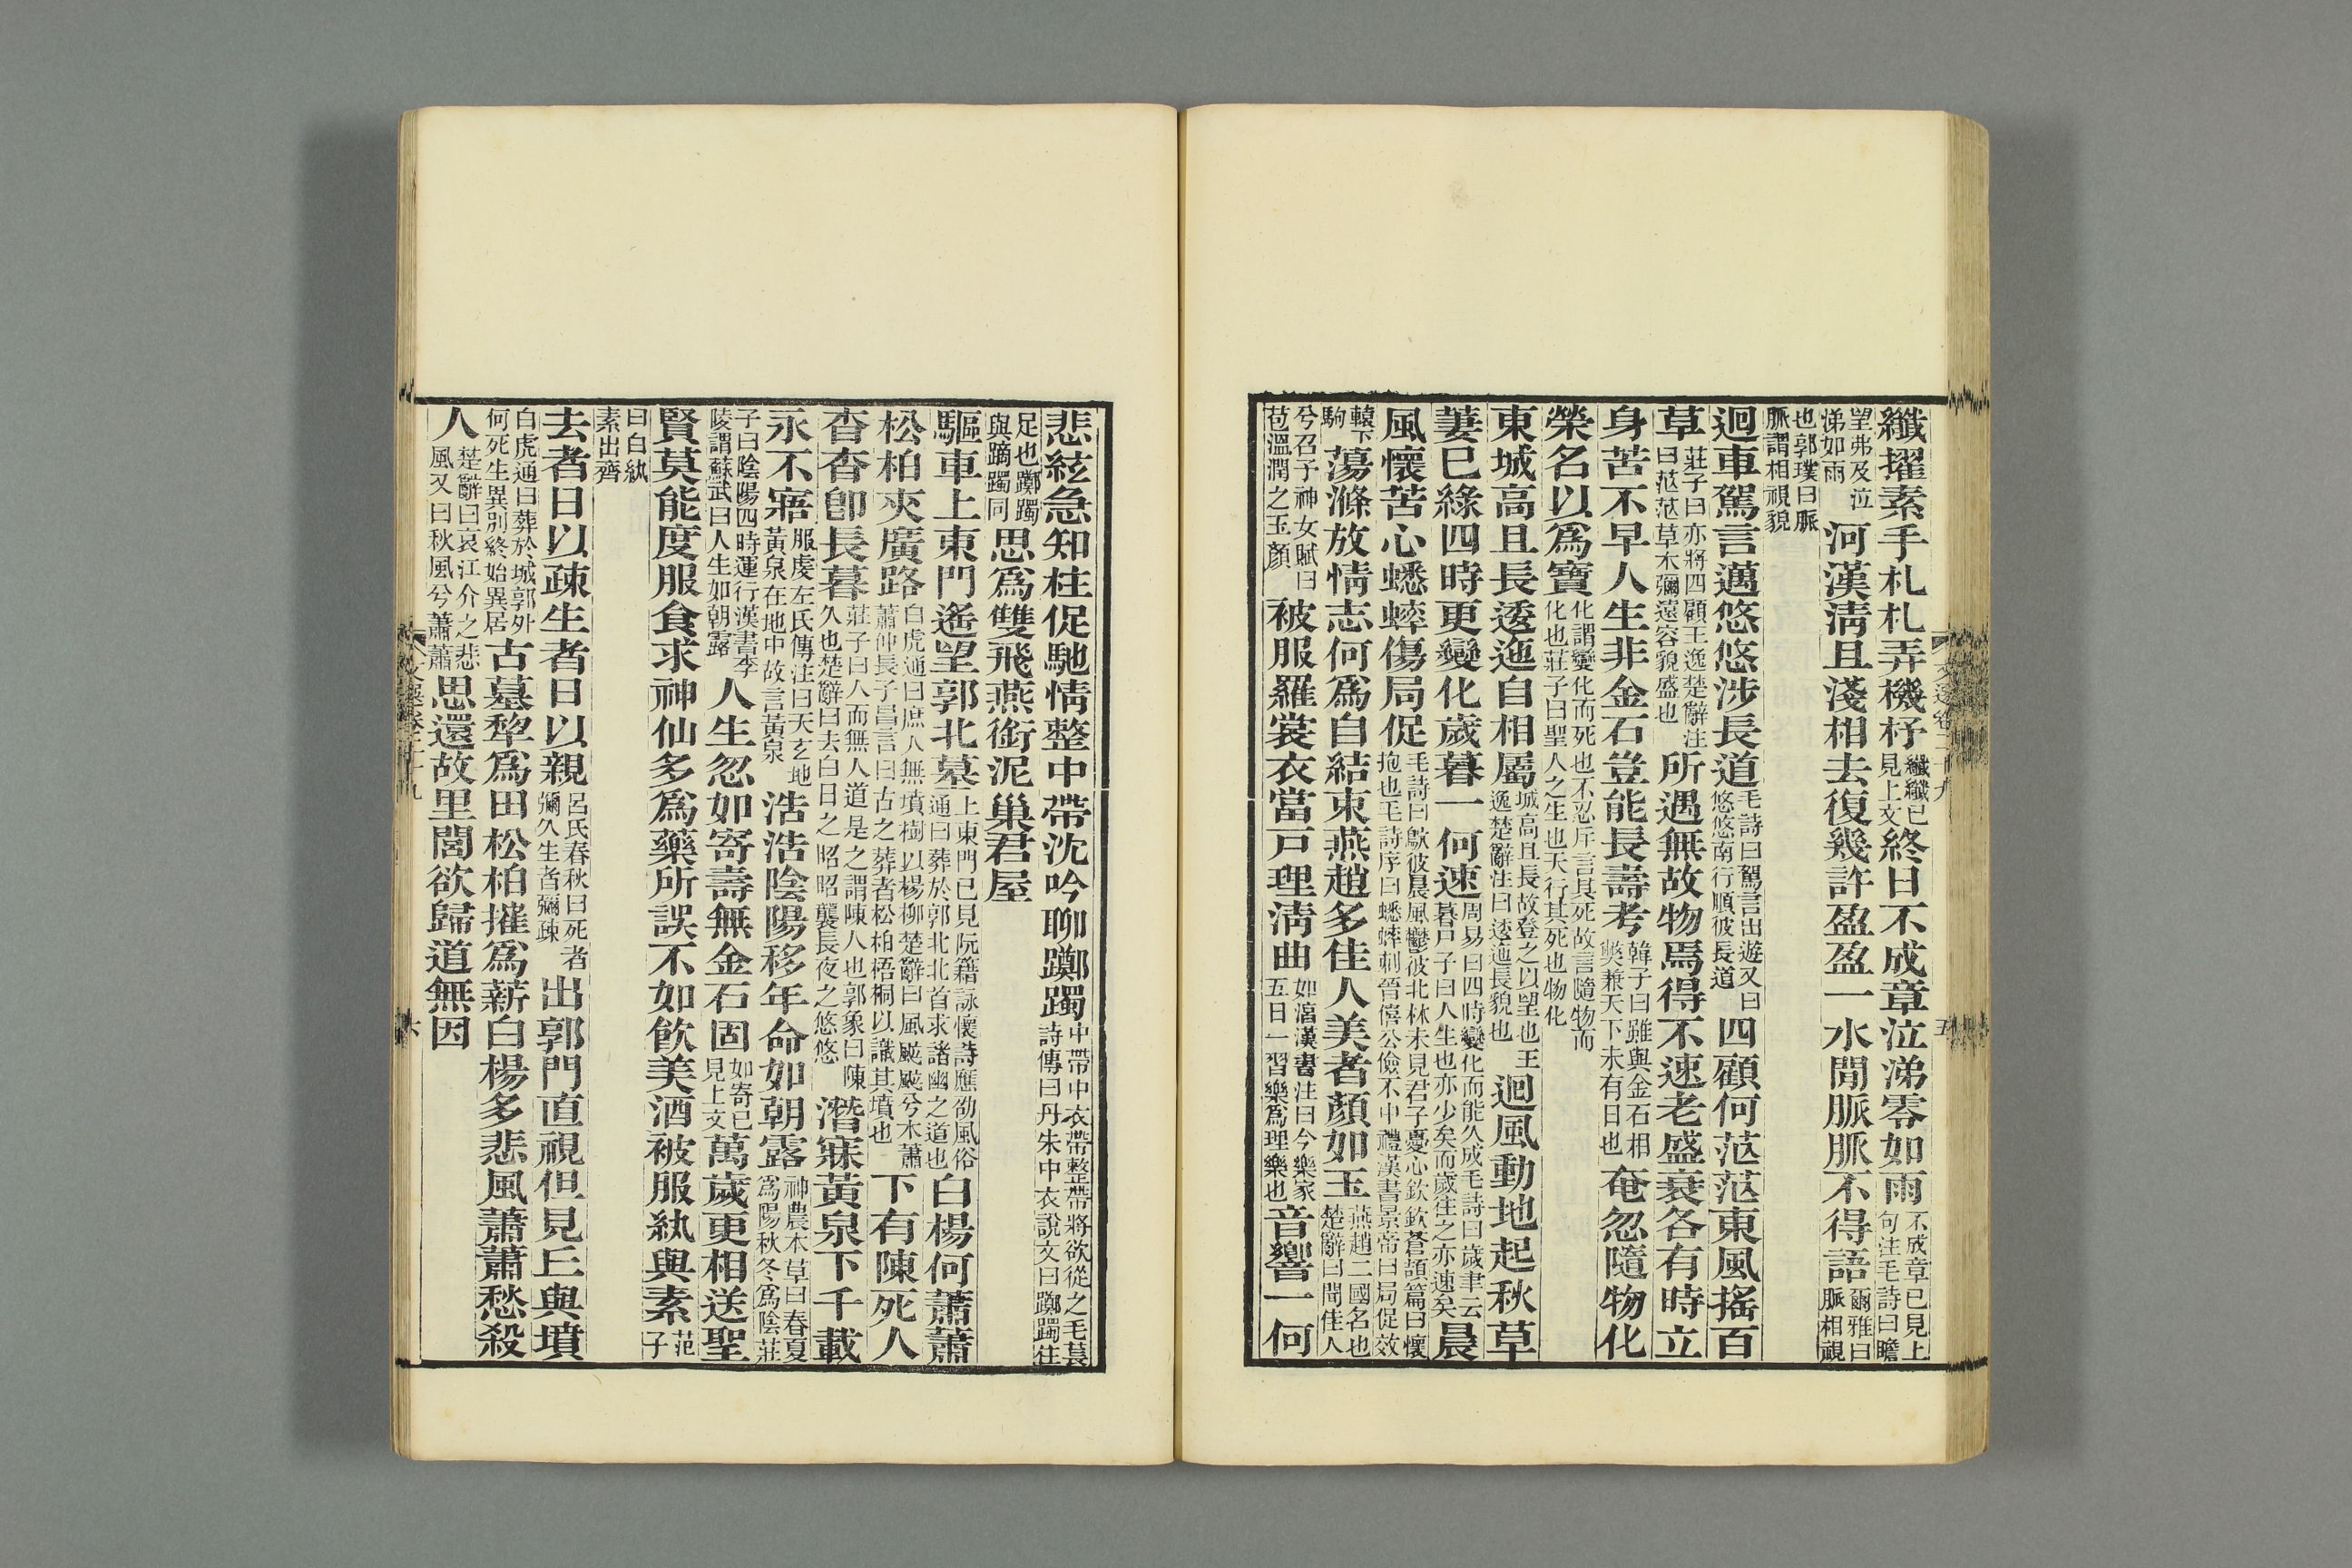 纖擢素手札札弄機杼纖纖已見上文終日不成章泣涕零如雨不成章已見上句注毛詩曰瞻
望弗及泣涕如雨河漢淸且淺相去復幾許盈盈一水閒脈脈不得語爾雅曰脈相視
也郭璞曰脈脈謂相視貌
迴車駕言邁悠悠涉長道毛詩曰駕言出遊又曰悠悠南行順彼長道四顧何茫茫東風搖百
草莊子曰亦將四顧王逸楚辭注曰茫茫草木彌遠容貌盛也所遇無故物焉得不速老盛衰各有時立
身苦不早人生非金石豈能長壽考韓子曰雖與金石相獘兼天下未有日也奄忽隨物化
榮名以爲寶化謂變化而死也不忍斥言其死故言隨物而化也莊子曰聖人之生也天行其死也物化
東城高且長逶迤自相屬城高且長故登之以望也王逸楚辭注曰逶迤長貌也迴風動地起秋草
萋已綠四時更變化歲暮一何速周易曰四時變化而能久成毛詩曰歲聿云暮尸子曰人生也亦少矣而歲往之亦速矣晨
風懷苦心蟋蟀傷局促毛詩曰鴥彼晨風鬱彼北林未見君子憂心欽欽蒼頡篇曰懷抱也毛詩序曰蟋蟀刺晉僖公儉不中禮漢書景帝曰局促效
轅下駒蕩滌放情志何爲自結束燕趙多佳人美者顏如玉燕趙二國名也楚辭曰聞佳人
兮召予神女賦曰苞溫潤之玉顏被服羅裳衣當戸理淸曲如淳漢書注曰今樂家五日一習樂爲理樂也音響一何
文選卷二十九
五
悲絃急知柱促馳情整中帶沈吟聊躑躅中帶中衣帶整帶將欲從之毛萇詩傳曰丹朱中衣說文曰躑躅住
足也躑躅與蹢躅同思爲雙飛燕銜泥巢君屋
驅車上東門遙望郭北墓上東門已見阮籍詠懷詩應劭風俗通曰葬於郭北北首求諸幽之道也白楊何蕭蕭
松柏夾廣路白虎通曰庶人無墳樹以楊柳楚辭曰風颯颯兮木蕭蕭仲長子昌言曰古之葬者松柏梧桐以識其墳也下有陳死人
杳杳卽長暮莊子曰人而無人道是之謂陳人也郭象曰陳久也楚辭曰去白日之昭昭襲長夜之悠悠潛寐黃泉下千載
永不寤服虔左氏傳注曰天玄地黃泉在地中故言黃泉浩浩陰陽移年命如朝露神農本草曰春夏爲陽秋冬爲陰莊
子曰陰陽四時運行漢書李陵謂蘇武曰人生如朝露人生忽如寄壽無金石固如寄已見上文萬歲更相送聖
賢莫能度服食求神仙多爲藥所誤不如飮美酒被服紈與素范子
曰白紈素出齊
去者日以疎生者日以親呂氏春秋曰死者彌久生者彌疎出郭門直視但見丘與墳
白虎通曰葬於城郭外何死生異別終始異居古墓犂爲田松柏摧爲薪白楊多悲風蕭蕭愁殺
人楚辭曰哀江介之悲風又曰秋風兮蕭蕭思還故里閭欲歸道無因
文選卷二十九
六